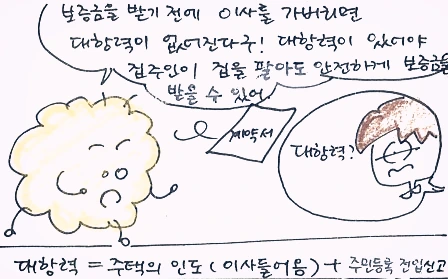 보증금을 받기 전에 이사를 가버리면
대항력이 없어진다구! 대항력이 있어야
집주인이 집을 팔아도 안전하게 보증금을
받을 수 있어.
계약서
대항력?
대항력 = 주택의 인도 (이사들어옴) + 주민등록 전입신고